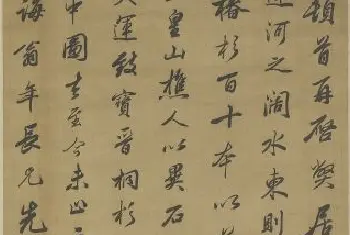 頓首再啓獘居
運河之闊水東則
椿杉百十本以
皇山樵人以異石
夫運致寶晉桐杉
中圖去至今未
海翁年長兄先